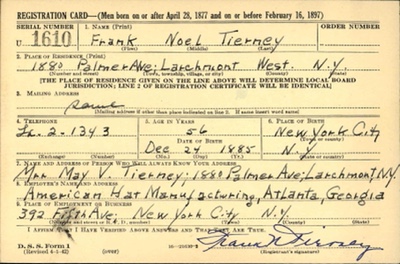 REGISTRATION CARD—(Men born on or after April 28, 1877 and on or before February 16, 1897)
SERIAL NUMBER 1. NAME (Print)
U 1610 Frank Noel Tierney
(First) (Middle) (Last)
2. PLACE OF RESIDENCE (Print)
1880 Palmer Ave; Larchmont West. N.Y.
(Number and street) (Town, township, village, or city) (County) (State)
[THE PLACE OF RESIDENCE GIVEN ON THE LINE ABOVE WILL DETERMINE LOCAL BOARD
JURISDICTION; LINE 2 OF REGISTRATION CERTIFICATE WILL BE IDENTICAL]
3. MAILING ADDRESS
Same
[Mailing address if other than place indicated on line 2. If same insert word same]
4. TELEPHONE 5. AGE IN YEARS 6. PLACE OF BIRTH
2-1343 56 New York City
DATE OF BIRTH (Town or county)
Dec 24 1885 N.Y
(Exchange) (Number) (Mo.) (Day) (Yr.) (State or country)
7. NAME AND ADDRESS OF PERSON WHO WILL ALWAYS KNOW YOUR ADDRESS
Mrs May V. Tierney; 1880 Palmer Ave; Larchmont, N.Y.
8. EMPLOYER'S NAME AND ADDRESS
American Hat Manufacturing, Atlanta, Georgia
9. PLACE OF EMPLOYMENT OR BUSINESS
392 Fifth Ave; New York City N.Y.
(Number and street or R. F. D. number) (Town) (County) (State)
I AFFIRM THAT I HAVE VERIFIED ABOVE ANSWERS AND THAT THEY ARE TRUE.
D. S. S. Form 1
(Revised 4-1-42) (over) Frank N Tierney
(Registrant's signature)